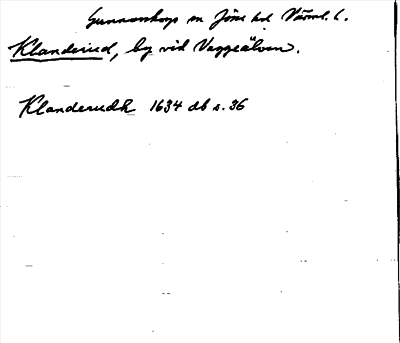 Gunnarskogs sn Jösse hd Värml. l.
Klanderud, by vid Veggeälven.
Klanderudh 1634 db s. 36